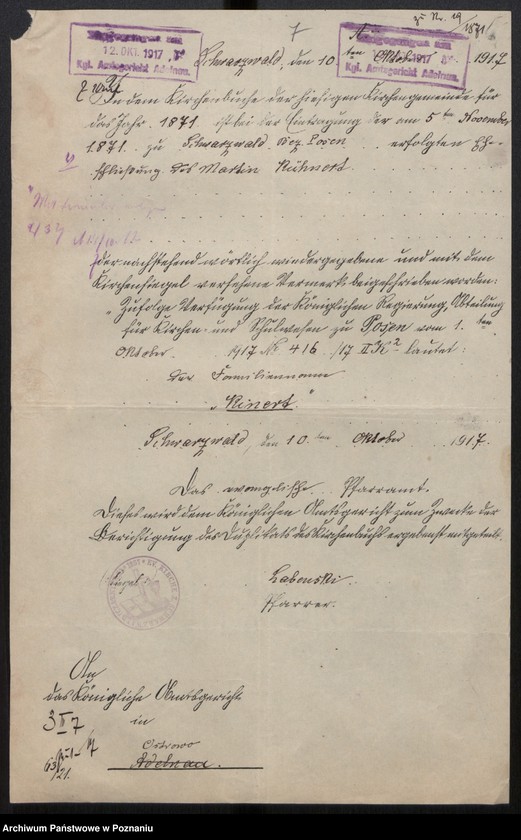 zu Nr. 19
1871
7
12. OKT. 1917
Kgl. Amtsgericht Adelnau.
Kgl. Amtsgericht Adelnau.
Schwarzwald, den 10ten Oktober 1917
In dem Kirchenbuche der hiesigen Kirchengemeinde für
das Jahr 1871 ist bei der Eintragung der am 5ten November
1871 zu Schwarzwald Bez. Posen erfolgten Ehe-
schließung des Martin Kühnert
der nachstehend wörtlich wiedergegebene und mit dem
Kirchensiegel versehene Vermerk beigeschrieben worden:
"Zufolge Verfügung der Königlichen Regierung, Abteilung
für Kirchen- und Schulwesen zu Posen vom 1.ten
Oktober 1917 No 416/17 II K2 lautet:
der Familienname
"Kinert."
Schwarzwald, den 10ten Oktober 1917.
Das evanglische Pfarramt.
Dieses wird dem Königlichen Amtsgericht zum Zwecke der
Berichtigung des Duplikats des Kirchenbuchs ergebenst mitgeteilt.
Labenski
Pfarrer.
An
das Königliche Amtsgericht
in
Ostrowo
Adelnau.
Archiwum Państwowe w Poznaniu